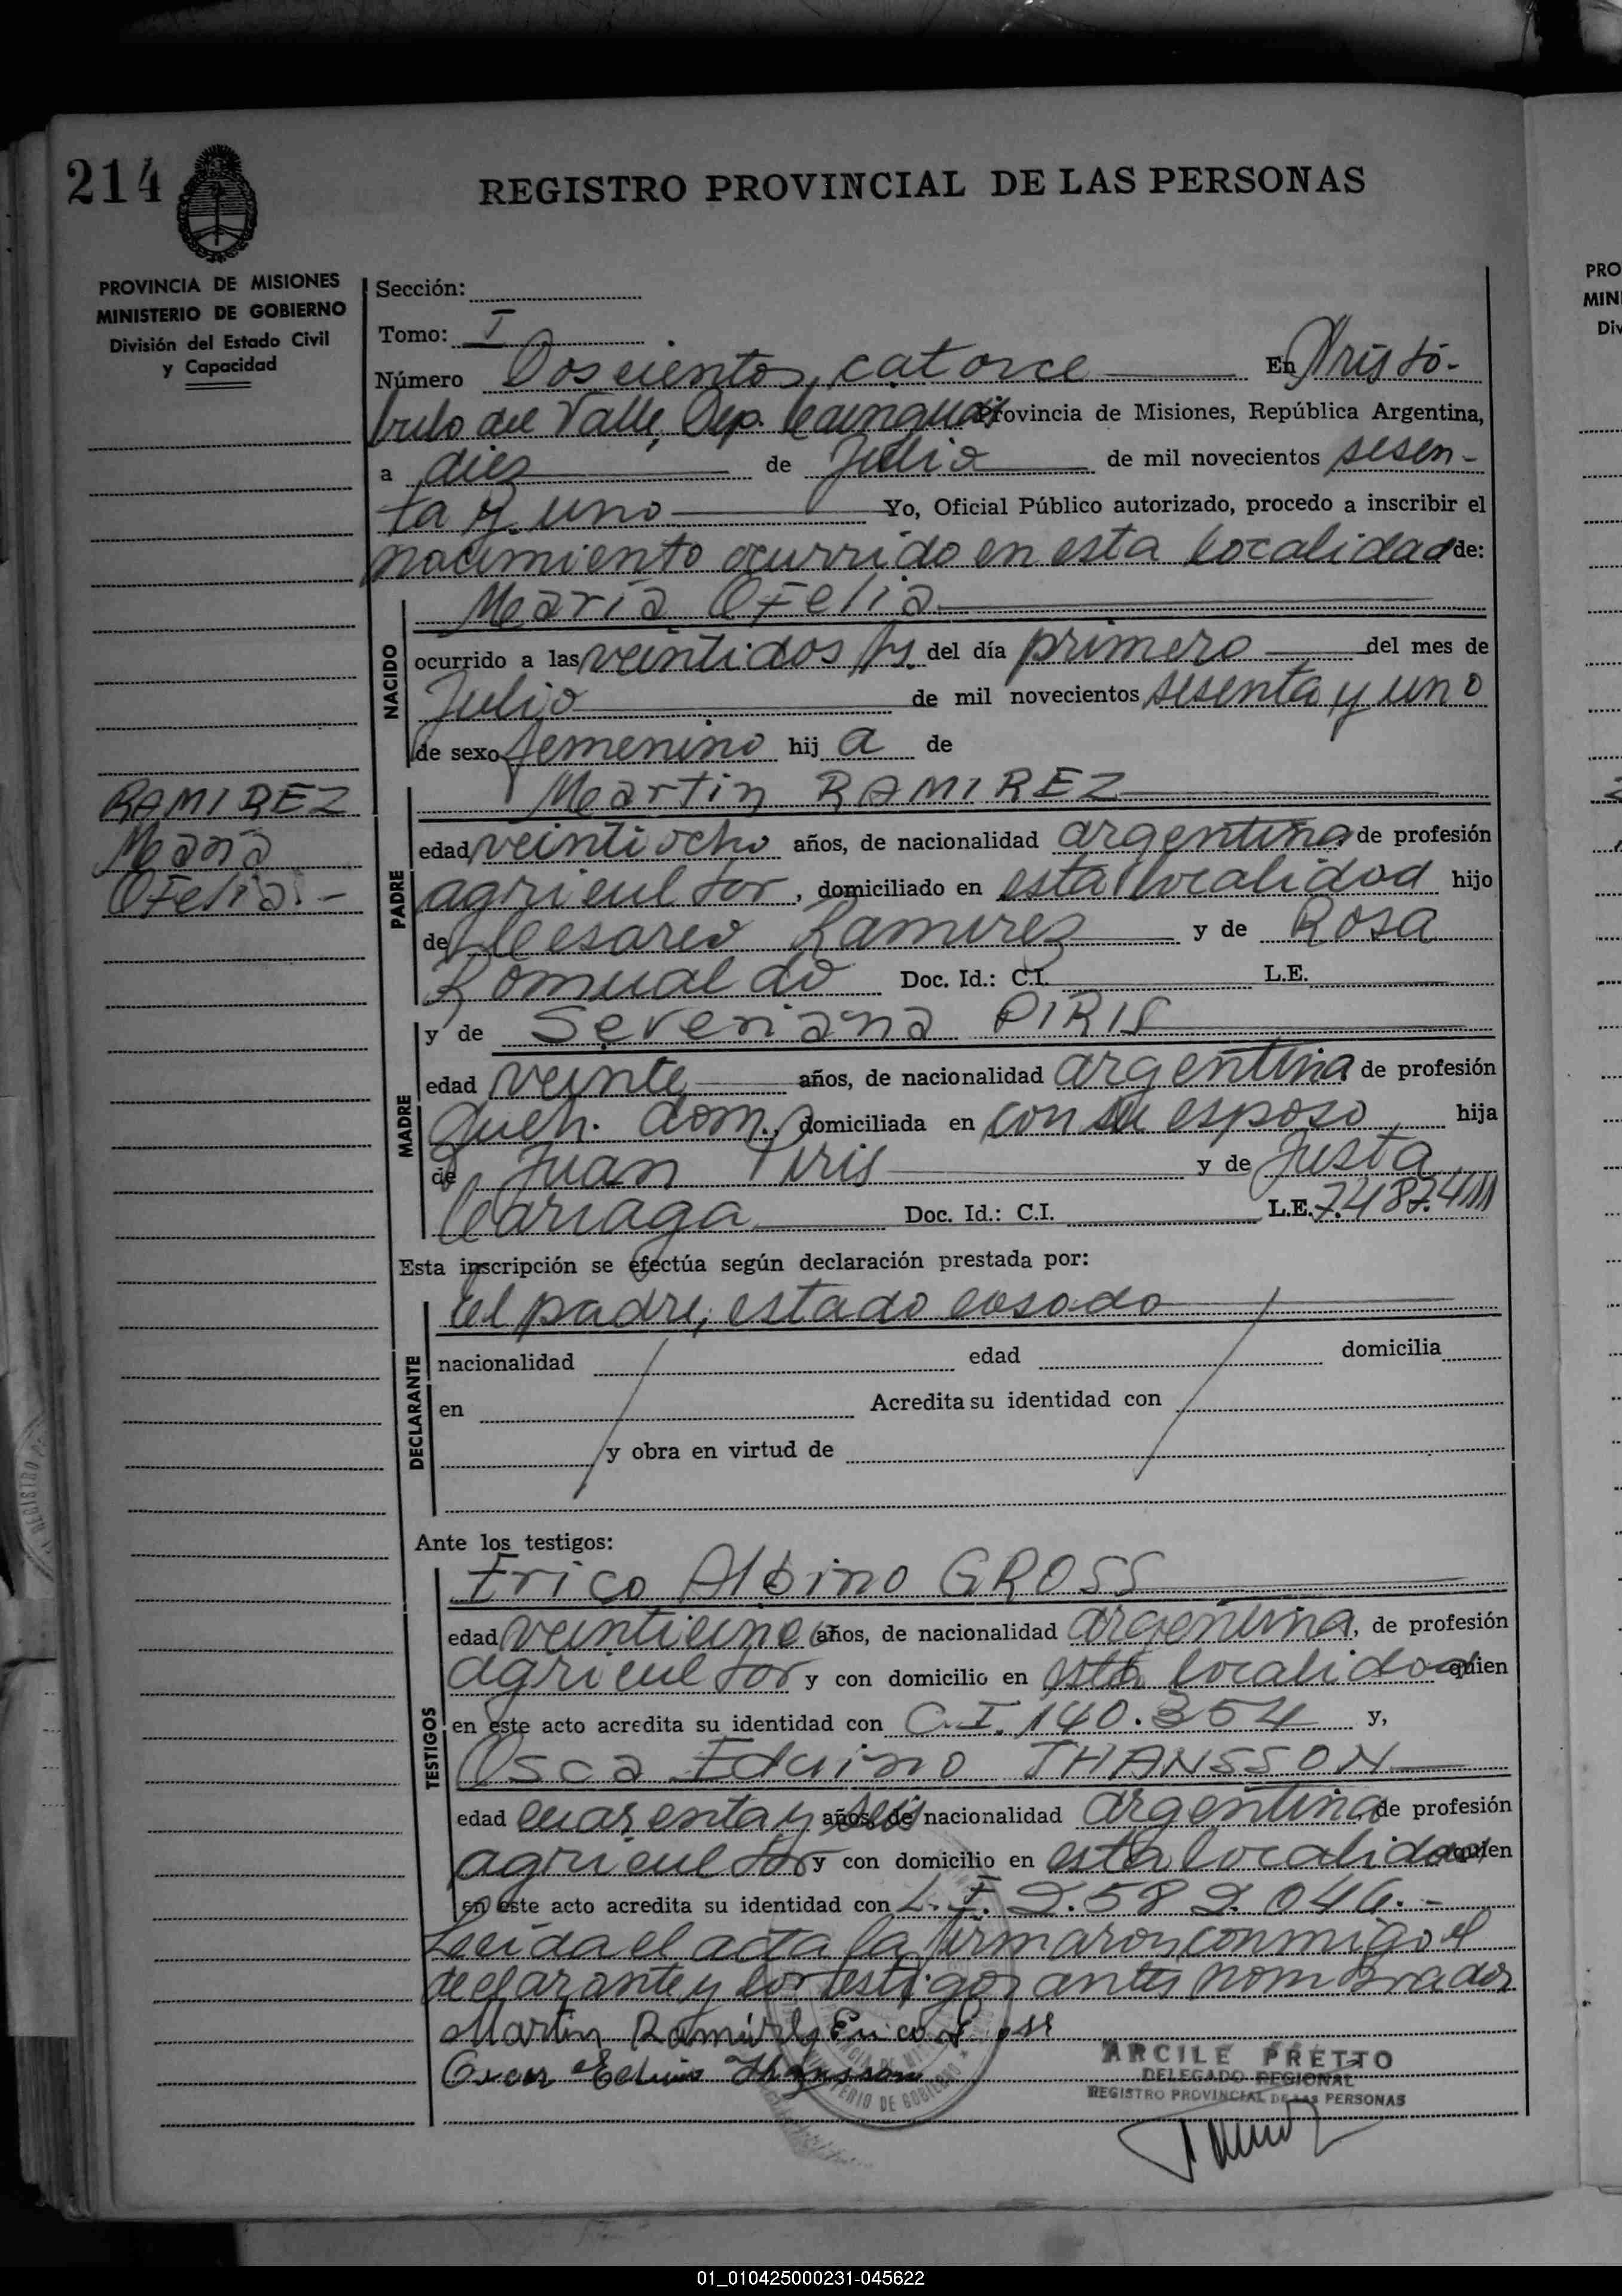 214
REGISTRO PROVINCIAL DE LAS PERSONAS
PROVINCIA DE MISIONES
MINISTERIO DE GOBIERNO
División del Estado Civil
y Capacidad
Sección:
Tomo: I
Número Doscientos catorce En Aristó-
bulo del Valle, Dep. Cainguás Provincia de Misiones, República Argentina,
a diez de Julio de mil novecientos sesen-
ta y uno Yo, Oficial Público autorizado, procedo a inscribir el
nacimiento ocurrido en esta localidad de:
María Ofelia
NACIDO
ocurrido a las veintidos hs. del día primero del mes de
Julio de mil novecientos sesenta y uno
de sexo femenino hij a de
Martin RAMIREZ
RAMIREZ
María
Ofelia.-
PADRE
edad veintiocho años, de nacionalidad argentina de profesión
agricultor, domiciliado en esta localidad hijo
de Cesareo Ramirez y de Rosa
Romualdo Doc. Id.: C.I. L.E.
y de Severiana PIRIS
MADRE
edad veinte años, de nacionalidad argentina de profesión
Queh. dom., domiciliada en con su esposo, hija
de Juan Piris y de Justa
Cariaga Doc. Id.: C.I. L.E.
Esta inscripción se efectúa según declaración prestada por:
el padre, estado casado
DECLARANTE
nacionalidad edad domicilia
en Acredita su identidad con
y obra en virtud de
Ante los testigos:
Erico Albino GROSS
TESTIGOS
edad veinticinco años, de nacionalidad argentina, de profesión
agricultor y con domicilio en esta localidad quien
en este acto acredita su identidad con C.I. 140.354 y,
Osca Eduino THANSSON
edad cuarenta y seis años, de nacionalidad argentina de profesión
agricultor y con domicilio en esta localidad quien
en este acto acredita su identidad con L.E. 2.582.046.-
Leída el acta la firmaron conmigo el
declarante y los testigos antes nombrados
Martin Ramirez Erico
Oscar Eduino Thansson
ARCILE PRETTO
DELEGADO REGIONAL
REGISTRO PROVINCIAL DE LAS PERSONAS
PRO
MIN
Div
01_010425000231-045622